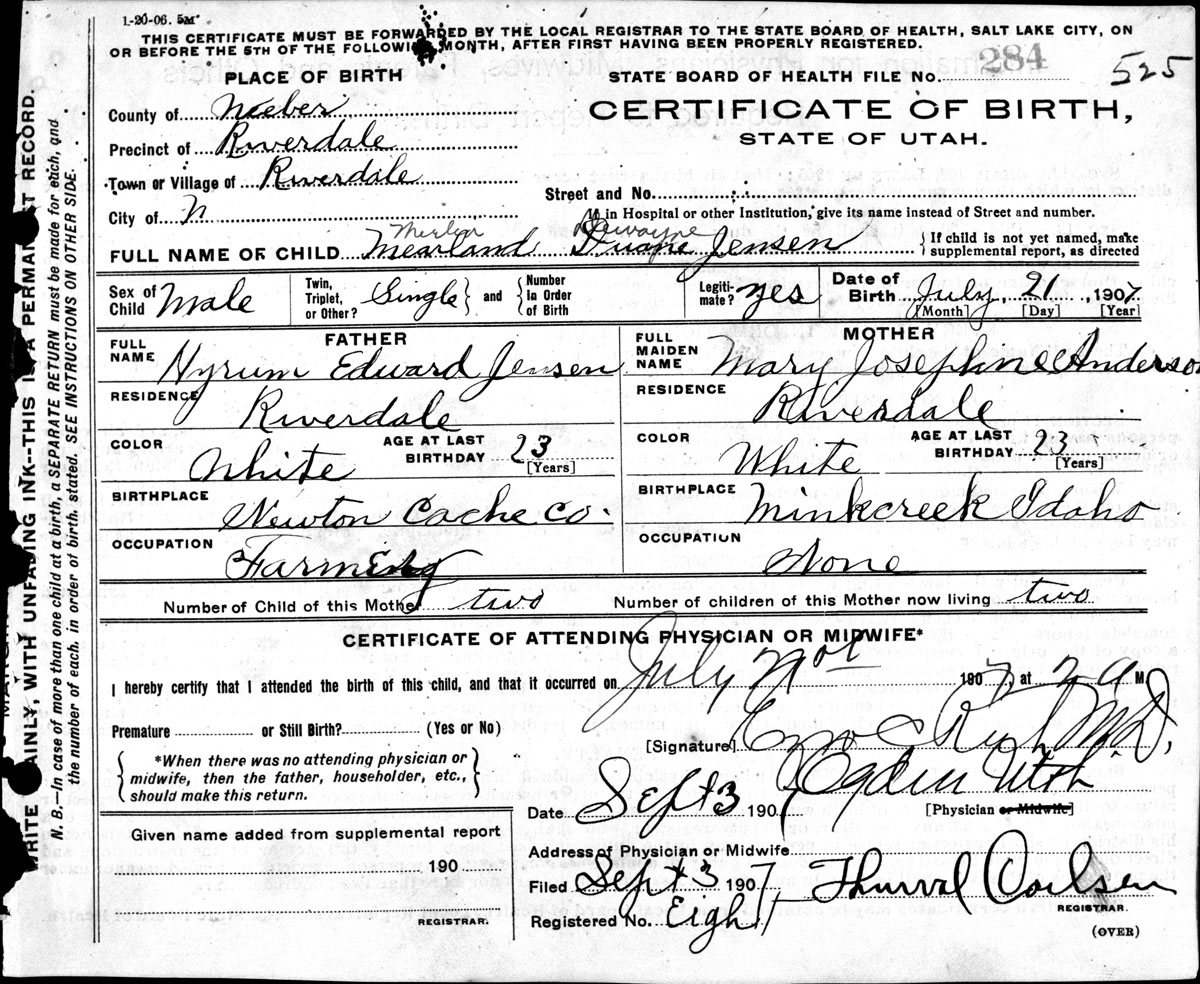 1-20-06. 5M
THIS CERTIFICATE MUST BE FORWARDED BY THE LOCAL REGISTRAR TO THE STATE BOARD OF HEALTH, SALT LAKE CITY, ON
OR BEFORE THE 5TH OF THE FOLLOWING MONTH, AFTER FIRST HAVING BEEN PROPERLY REGISTERED.
PLACE OF BIRTH
STATE BOARD OF HEALTH FILE No. 284
525
County of Weber
CERTIFICATE OF BIRTH,
Precinct of Riverdale
STATE OF UTAH.
Town or Village of Riverdale
Street and No.
City of
If in Hospital or other Institution, give its name instead of Street and number.
Merlin Dewayne
FULL NAME OF CHILD Mearland Duane Jensen
{If child is not yet named, make
supplemental report, as directed
Sex of Child Male
Twin, Triplet, or Other? Single } and { Number in Order of Birth
Legiti-mate? Yes
Date of Birth July, 21, 1907
[Month] [Day] [Year]
FATHER
MOTHER
FULL NAME Hyrum Edward Jensen
FULL MAIDEN NAME Mary Josephine Anderson
RESIDENCE Riverdale
RESIDENCE Riverdale
COLOR White
AGE AT LAST BIRTHDAY 23 [Years]
COLOR White
AGE AT LAST BIRTHDAY 23 [Years]
BIRTHPLACE Newton Cache Co.
BIRTHPLACE Minkcreek Idaho
OCCUPATION Farming
OCCUPATION None
Number of Child of this Mother two
Number of children of this Mother now living two
CERTIFICATE OF ATTENDING PHYSICIAN OR MIDWIFE*
I hereby certify that I attended the birth of this child, and that it occurred on July 1907, at 2 a M.
Premature or Still Birth? (Yes or No)
[Signature] Rich M.D.
{*When there was no attending physician or
midwife, then the father, householder, etc.,
should make this return.}
Ogden Utah
Date Sept 3 1907
[Physician or Midwife]
Given name added from supplemental report
190
REGISTRAR.
Address of Physician or Midwife
Filed Sept 3 1907
Thurval
REGISTRAR.
Registered No. Eight
(OVER)
WRITE PLAINLY, WITH UNFADING INK--THIS IS A PERMANENT RECORD.
N. B. In case of more than one child at a birth, a SEPARATE RETURN must be made for each, and
the number of each, in order of birth, stated. SEE INSTRUCTIONS ON OTHER SIDE.